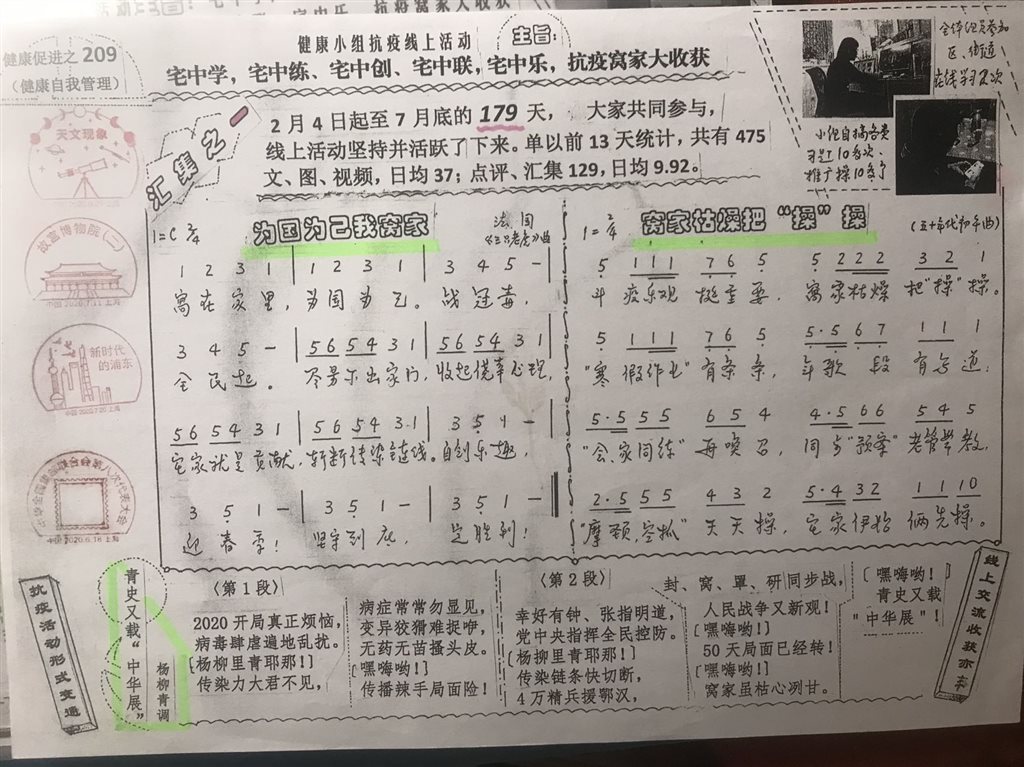 健康促进之 209
（健康自我管理）
健康小组抗疫线上活动
主旨：
宅中学，宅中练、宅中创、宅中联，宅中乐，抗疫窝家大收获
汇集之
2月4日起至7月底的 179 天， 大家共同参与，
线上活动坚持并活跃了下来。单以前13天统计，共有475
文、图、视频，日均37；点评、汇集129，日均9.92。
全体组员参加
区、街道
在线学习2次
小组自搞各类
习题10多次、
推广操10多了
天文现象
故宫博物院(二)
中国 2020.7.11 上海
新时代
的浦东
中国 2020.7.20 上海
中国 2020.6.18 上海
1=C 2/4 为国为己我窝家
法国
《三只老虎》曲
1 2 3 1 | 1 2 3 1 | 3 4 5 -
窝在家里，为国为己。战冠毒，
3 4 5 - | 56 54 3 1 | 56 54 3 1
全民起。尽量不出家门，
56 54 3 1 | 56 54 3 1 | 3 5 1 -
宅家就是贡献，斩断传染链线。自创乐趣，
3 5 1 - | 3 5 1 - | 3 5 1 -
迎春季！坚守到底，定胜利！
1=2/4 窝家枯燥把“操”操
(五十年代初年曲)
5 111 76 5 5 222 32 1
斗疫乐观挺重要，窝家枯燥把“操”操。
5 111 76 5 5·5 67 11 1
“寒假作业”有条条，年歌段有方道；
5·5 55 65 4 4·5 66 54 5
“会家同练”再唤召，同步“颈条”老管学教，
2·5 55 43 2 5·4 32 11 10
“摩颈，空抓”天天操，宅家伊始俩先操。
抗疫活动形式变通
青史又载“中华展”
杨柳青调
〈第1段〉
2020开局真正烦恼，
病毒肆虐遍地乱扰。
[杨柳里青耶那！]
传染力大君不见，
病症常常勿显见，
变异狡猾难捉咿，
无药无苗搔头皮。
[嘿嗨哟！]
传播辣手局面险！
〈第2段〉
幸好有钟、张指明道，
党中央指挥全民控防。
[杨柳里青耶那！]
传染链条快切断，
4万精兵援鄂汉，
封、窝、罩、研同步战，
人民战争又新观！
[嘿嗨哟！]
50天局面已经转！
[嘿嗨哟！]
窝家虽枯心冽甘。
[嘿嗨哟！
青史又载
"中华展"！
线上交流收获亦丰